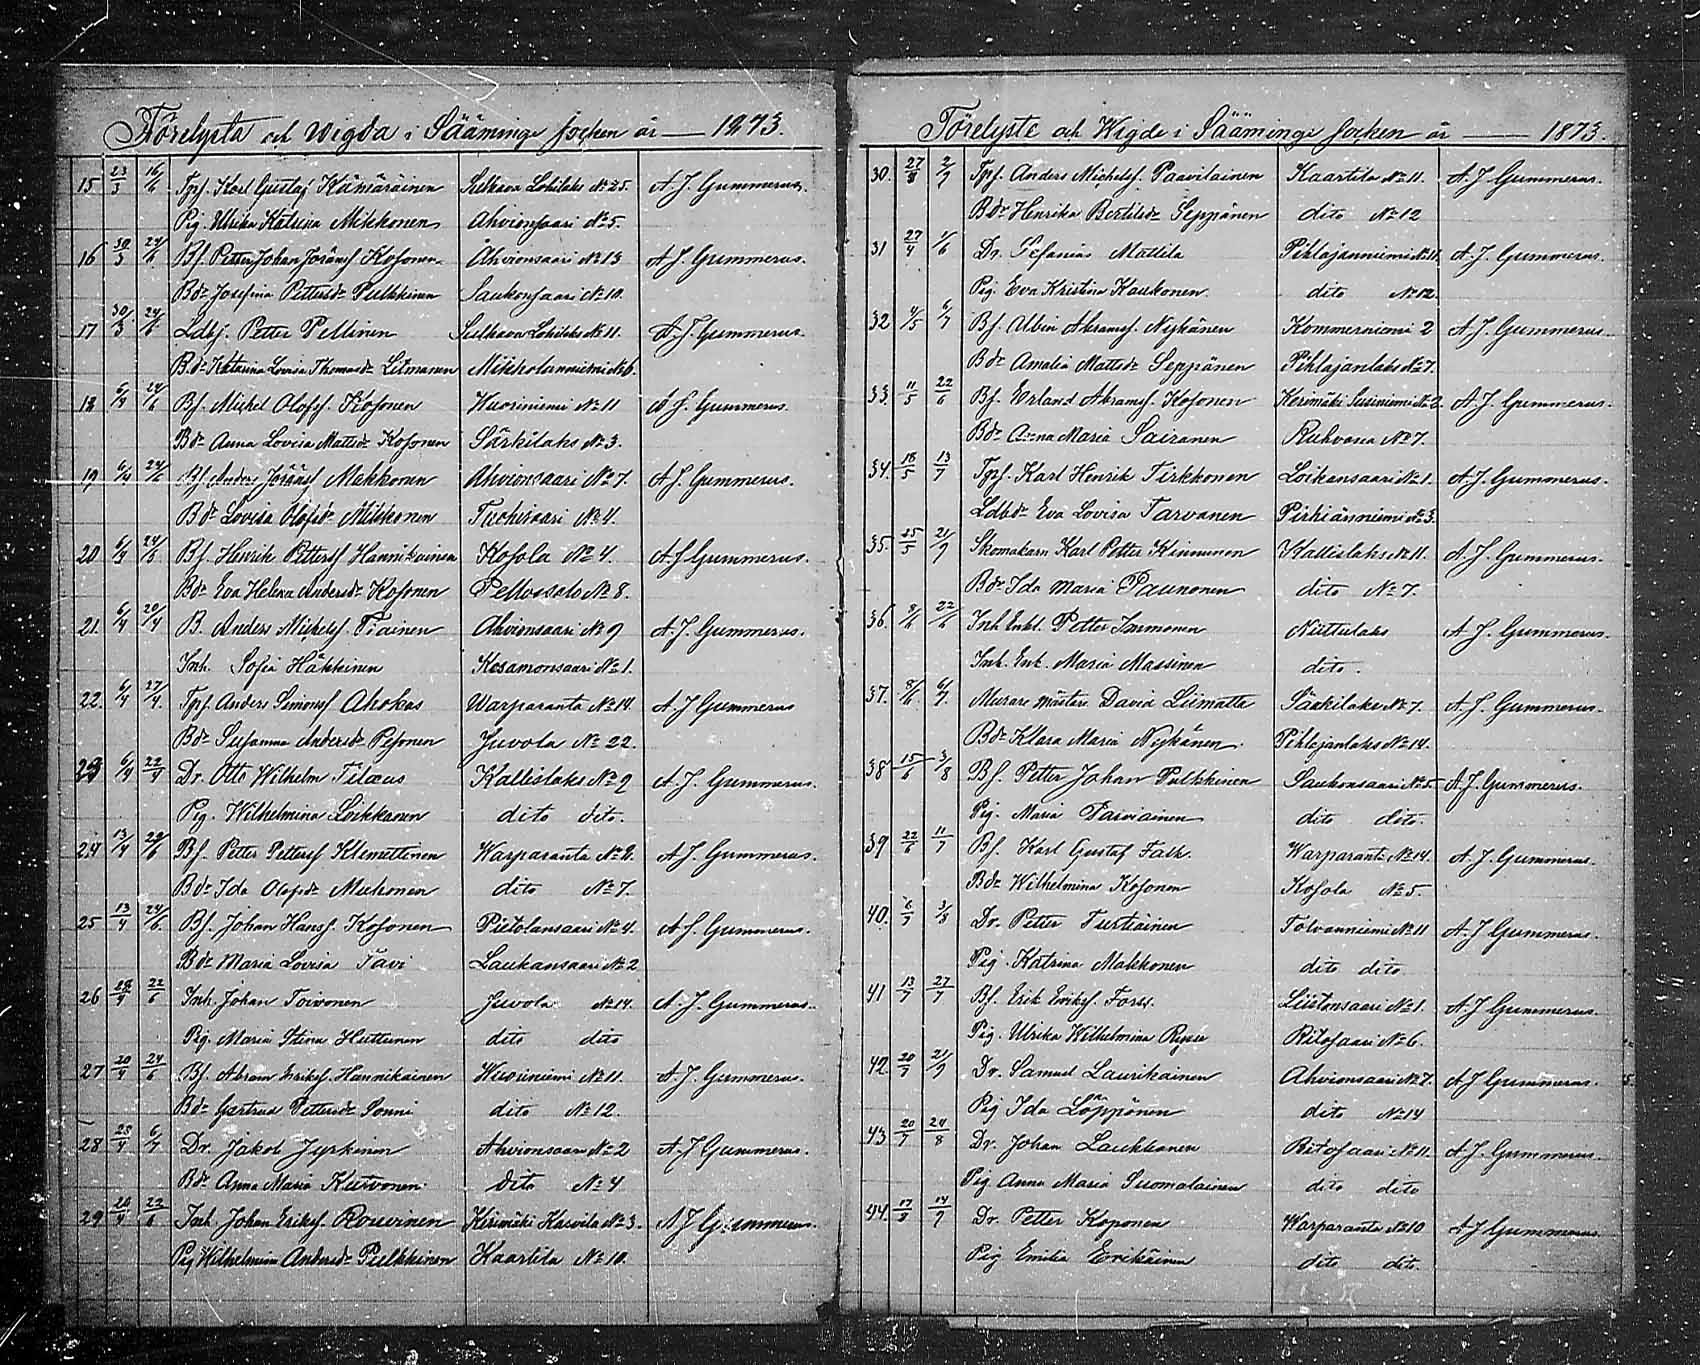 Förelysta och Wigda i Sääminge socken år — 1873.
15 23/3 16/6 Tpf. Karl Gustaf Kämäräinen Sulkava Lohilaks No 25. A. J. Gummerus.
Pig. Ulrika Katrina Mikkonen Ahvionsaari No 5.
16 30/3 24/6 Bf. Petter Johan Göransf Kosonen Ahvionsaari No 13 A J Gummerus.
Bdr Josefina Pettersdr Pulkkinen Saukonsaari No 10.
17 30/3 24/6 Ldbf. Petter Pellinen Sulkava Lohilaks No 11. A. J. Gummerus.
Bdr Katarina Lovisa Thomasdr Litmanen Mikkolanniemi No 6.
18 6/4 24/6 Bf. Mickel Olofsf. Kosonen Wuoriniemi No 11 A J. Gummerus.
Bdr Anna Lovisa Mattsdr Kosonen Särkilaks No 3.
19 6/4 24/6 Bf. Anders Göransf Makkonen Ahvionsaari No 7. A J. Gummerus.
Bdr Lovisa Olofsdr Mikkonen No 4.
20 6/4 24/6 Bf. Henrik Pettersf Hannikainen Kosola No 4. A J Gummerus.
Bdr Eva Helena Andersdr Kosonen Pellossalo No 8.
21. 6/4 20/4 B. Anders Mickelsf. Tiainen Ahvionsaari No 9 A. J. Gummerus.
Inh. Sofia Häkkinen Kesamonsaari No 1.
22. 6/4 27/4. Tpf. Anders Simonsf Ahokas Warparanta No 14. A. J Gummerus
Bdr Susanna Andersdr Pesonen Juvola No 22.
23 6/4 22/4 Dr. Otto Wilhelm Tilaeus Kallislaks No 9 A. J. Gummerus.
Pig. Wilhelmina Loikkanen dito dito.
24 13/4 22/6 Bf. Petter Pettersf Klemettinen Warparanta No A J. Gummerus.
Bdr Ida Olofsdr Muhonen dito No 7.
25 13/4 24/6. Bf. Johan Hansf. Kosonen Pietolansaari No 4. A J. Gummerus.
Bdr Maria Lovisa Tävi Laukansaari No 2
26 22/6 Inh. Johan Toivonen Juvola No 14. A. J. Gummerus.
Pig. Maria Stina Huttunen dito dito
27 20/4 24/6 Bf. Abram Eriksf. Hannikainen Wuoriniemi No 11. A. J. Gummerus.
Bdr Gertrud Pettersdr Sonni dito No 12.
28 6/7 Dr. Jakob Jyrkinen Ahvionsaari No 2 A. J Gummerus.
Bdr Anna Maria Kurvonen dito No 4
29 22/6 Inh. Johan Eriksf. Rouvinen Kerimäki Karvila No 3. A J Gummerus.
Pig Wilhelmina Andersdr Pulkkinen Kaartila No 10.
Förelyste och Wigde i Sääminge socken år — 1873.
30. 2/7 Tpf. Anders Mickelsf. Paavilainen Kaartila No 11. A J Gummerus.
Bdr Henrika Bertilsdr Seppänen dito No 12
31 27/4 1/6 Dr. Sefanias Mattila Pihlajanniemi No 11. A. J. Gummerus.
Pig. Eva Kristina Kaukonen. dito No 12.
32 4/5 6/7 Bf. Albin Abramsf. Nykänen Kommerniemi 2 A J. Gummerus.
Bdr Amalia Mattsdr Seppänen Pihlajanlaks No 7.
33. 11/5 22/6 Bf. Erland Abramsf. Kosonen Kerimäki Susiniemi No 2 A J. Gummerus.
Bdr Anna Maria Sairanen Ruhvana No 7.
34. 18/5 13/7 Tpf. Karl Henrik Tirkkonen Loikansaari No 1. A. J. Gummerus.
Ldbdr Eva Lovisa Tarvanen Pirhiänniemi No 3.
35. 25/5 21/9 Skomakarn Karl Petter Kinnunen Kallislaks No 11. A. J. Gummerus.
Bdr Ida Maria Paunonen dito No 7.
36. 22/6 Inh Enkl. Petter Immonen Niittulaks A J. Gummerus.
Inh. Enk. Maria Massinen dito.
37. 8/6. 6/7. Murare mästare David Liimatta Särkilaks No 7. A J. Gummerus.
Bdr Klara Maria Nykänen. Pihlajanlaks No 14.
38 15/6 3/8 Bf. Petter Johan Pulkkinen Saukonsaari No 5. A J. Gummerus.
Pig. Maria Parviainen dito dito.
39 22/6 11/7 Bf. Karl Gustaf Falk. Warparanta No 14. A. J. Gummerus.
Bdr Wilhelmina Kosonen Kosola No 5.
40. 6/7 3/8 Dr. Petter Turtiainen Tolvanniemi No 11 A. J Gummerus.
Pig. Katrina Makkonen dito dito
41 13/7 27/7 Bf. Erik Eriksf. Forss. Liistonsaari No 1. A. J Gummerus.
Pig. Ulrika Wilhelmina Ritosaari No 6.
42. 20/7 21/9 Dr. Samuel Laurikainen Ahvionsaari No 7. A J Gummerus.
Pig Ida Löppönen dito No 14
43 20/7 24/8 Dr. Johan Laukkanen Ritosaari No 11. A J. Gummerus.
Pig Anna Maria Suomalainen dito dito
44. 14/9 Dr. Petter Koponen Warparanta No 10 A J Gummerus.
Pig Emilia Eerikäinen dito dito.